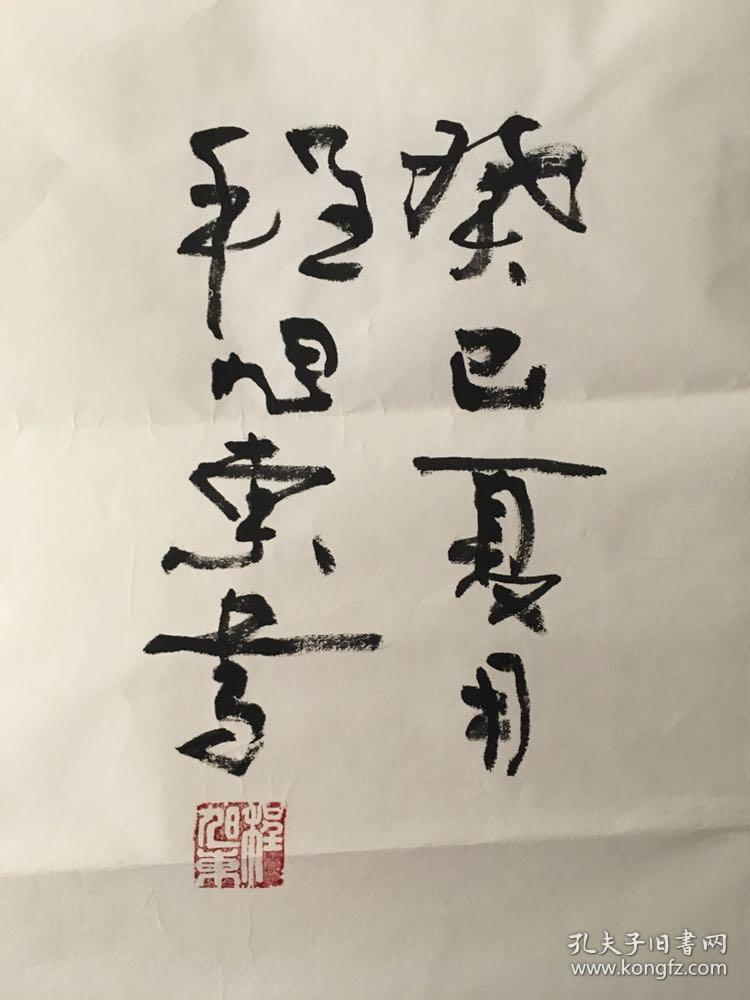 癸巳夏月
程旭东书
程旭東
孔夫子旧書网
www.kongfz.com